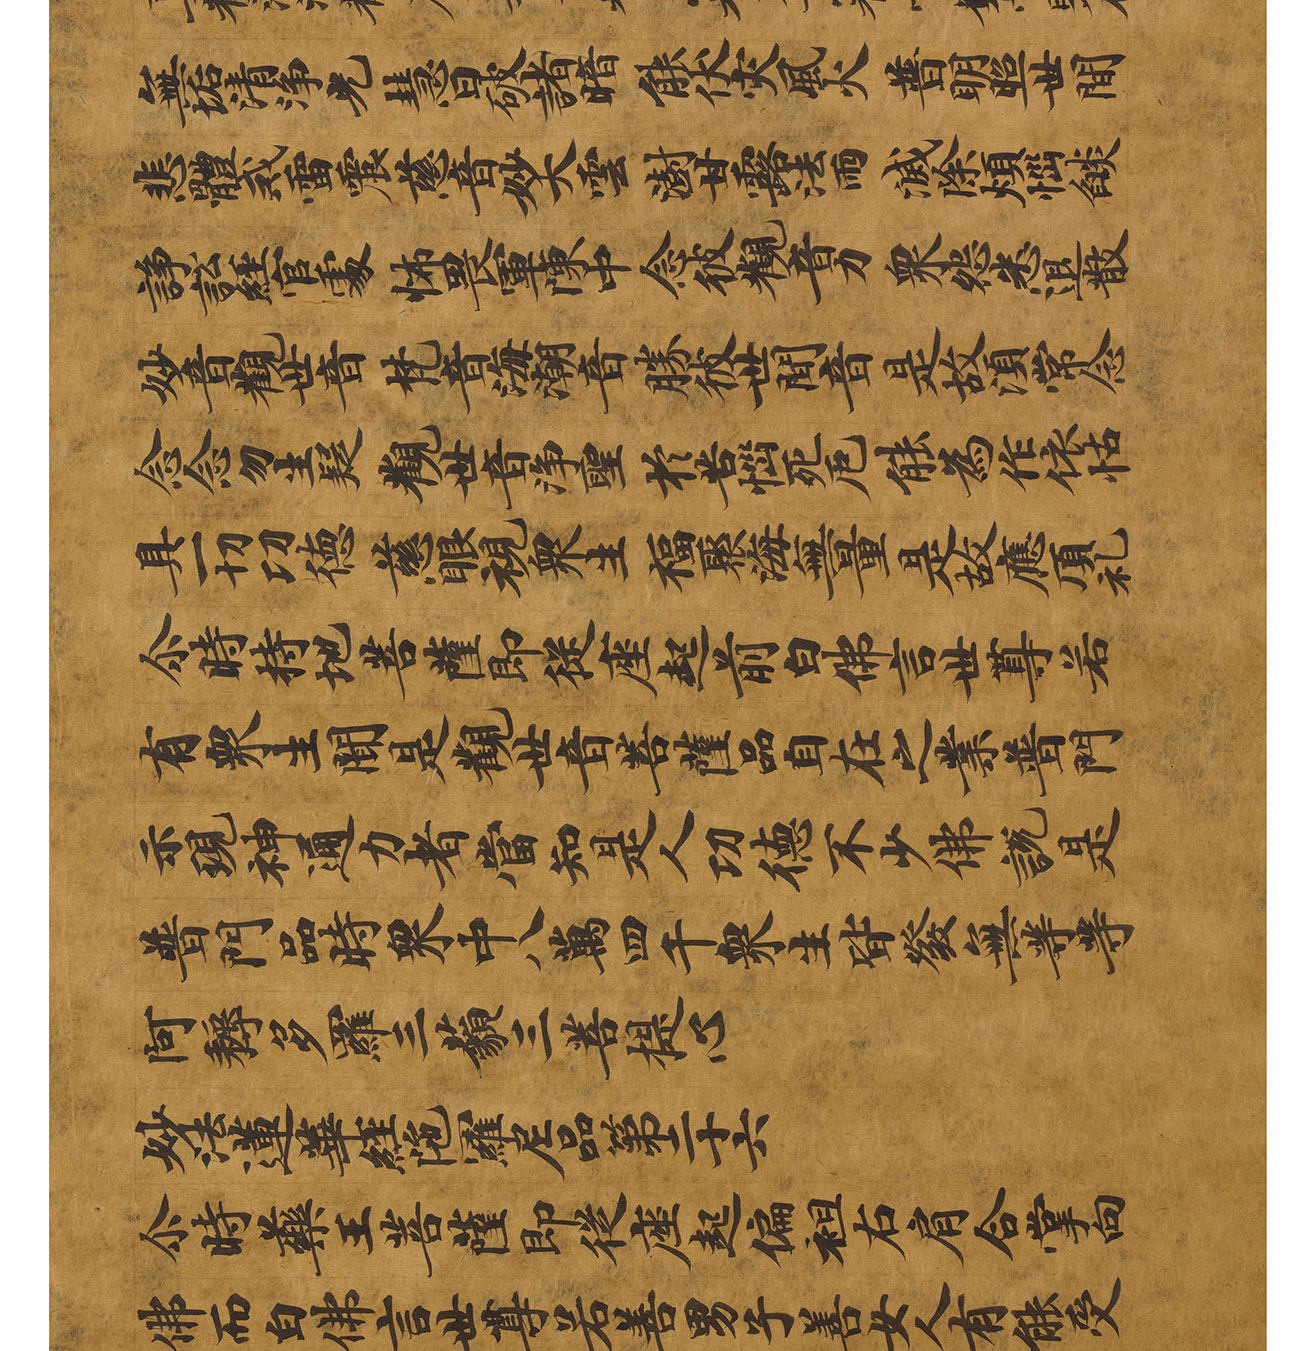 無垢清淨光 慧日破諸暗 能伏灾風火 普明照世間
悲體戒雷震 慈音妙大雲 澍甘露法雨 滅除煩惱焰
諍訟經官處 怖畏軍陣中 念彼觀音力 衆怨悉退散
妙音觀世音 梵音海潮音 勝彼世間音 是故須常念
念念勿生疑 觀世音淨聖 於苦惱死厄 能為作依怙
具一切功德 慈眼視衆生 福聚海無量 是故應頂礼
尒時持地菩薩即從座起前白佛言世尊若
有衆生聞是觀世音菩薩品自在之業普門
示現神通力者當知是人功德不少佛說是
普門品時衆中八萬四千衆生皆發無等等
阿耨多羅三藐三菩提心
妙法蓮華經陁羅尼品第二十六
尒時藥王菩薩即從座起偏袒右肩合掌向
佛而白佛言世尊若善男子善女人有能受